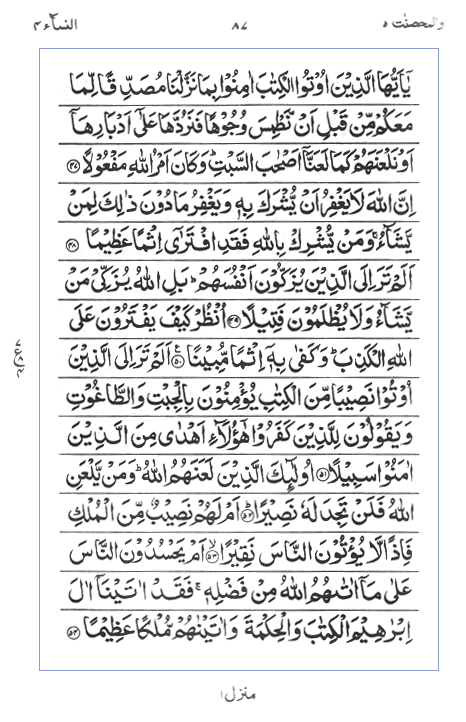 والمحصنٰت ٥ ٨٧ النسآء ٤
يٰٓاَيُّهَا الَّذِيْنَ اُوْتُوا الْكِتٰبَ اٰمِنُوْا بِمَا نَزَّلْنَا مُصَدِّقًا لِّمَا
مَعَكُمْ مِّنْ قَبْلِ اَنْ نَّطْمِسَ وُجُوْهًا فَنَرُدَّهَا عَلٰٓى اَدْبَارِهَآ
اَوْ نَلْعَنَهُمْ كَمَا لَعَنَّآ اَصْحٰبَ السَّبْتِ ؕ وَكَانَ اَمْرُ اللّٰهِ مَفْعُوْلًا ﴿۴۷﴾
اِنَّ اللّٰهَ لَا يَغْفِرُ اَنْ يُّشْرَكَ بِهٖ وَيَغْفِرُ مَا دُوْنَ ذٰلِكَ لِمَنْ
يَّشَآءُ ۚ وَمَنْ يُّشْرِكْ بِاللّٰهِ فَقَدِ افْتَرٰٓى اِثْمًا عَظِيْمًا ﴿۴۸﴾
اَلَمْ تَرَ اِلَى الَّذِيْنَ يُزَكُّوْنَ اَنْفُسَهُمْ ؕ بَلِ اللّٰهُ يُزَكِّيْ مَنْ
يَّشَآءُ وَلَا يُظْلَمُوْنَ فَتِيْلًا ﴿۴۹﴾ اُنْظُرْ كَيْفَ يَفْتَرُوْنَ عَلَى
اللّٰهِ الْكَذِبَ ؕ وَكَفٰى بِهٖٓ اِثْمًا مُّبِيْنًا ﴿۵۰﴾ اَلَمْ تَرَ اِلَى الَّذِيْنَ
اُوْتُوْا نَصِيْبًا مِّنَ الْكِتٰبِ يُؤْمِنُوْنَ بِالْجِبْتِ وَالطَّاغُوْتِ
وَيَقُوْلُوْنَ لِلَّذِيْنَ كَفَرُوْا هٰٓؤُلَآءِ اَهْدٰى مِنَ الَّذِيْنَ
اٰمَنُوْا سَبِيْلًا ﴿۵۱﴾ اُولٰٓئِكَ الَّذِيْنَ لَعَنَهُمُ اللّٰهُ ؕ وَمَنْ يَّلْعَنِ
اللّٰهُ فَلَنْ تَجِدَ لَهٗ نَصِيْرًا ﴿۵۲﴾ اَمْ لَهُمْ نَصِيْبٌ مِّنَ الْمُلْكِ
فَاِذًا لَّا يُؤْتُوْنَ النَّاسَ نَقِيْرًا ﴿۵۳﴾ اَمْ يَحْسُدُوْنَ النَّاسَ
عَلٰى مَآ اٰتٰىهُمُ اللّٰهُ مِنْ فَضْلِهٖ ۚ فَقَدْ اٰتَيْنَآ اٰلَ
اِبْرٰهِيْمَ الْكِتٰبَ وَالْحِكْمَةَ وَاٰتَيْنٰهُمْ مُّلْكًا عَظِيْمًا ﴿۵۴﴾
منزل ١